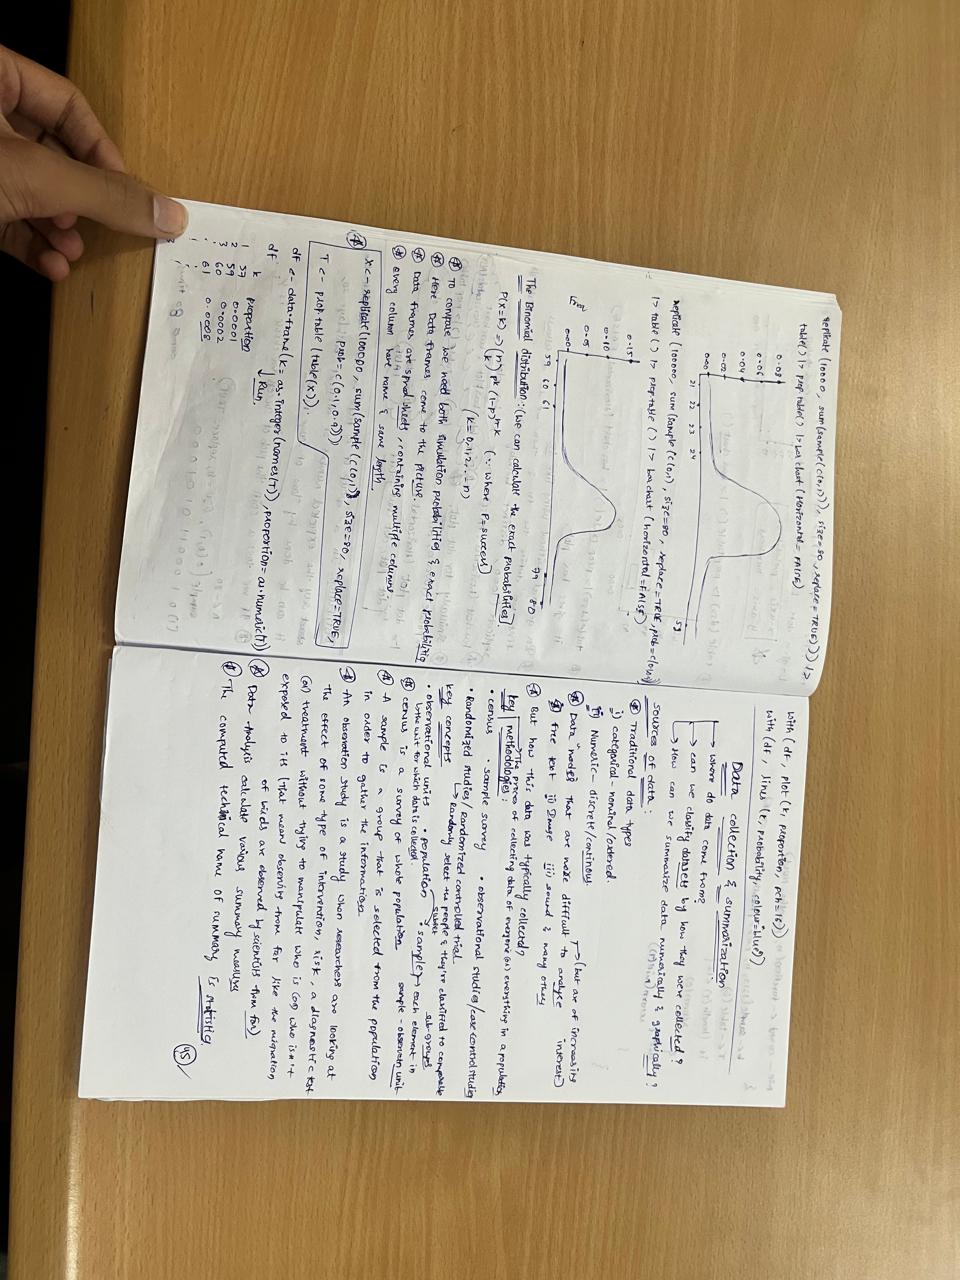 replicate (10000, sum(sample(c(0,1)), size=80, replace=TRUE))) |>
table() |> prop.table() |> barchart (Horizontal = FALSE)
0.08
0.06
0.04
0.02
0.00
21 22 23 24 59
replicate (100000, sum(sample(c(0,1), size=80, replace=TRUE, prob=c(0.1,0.9)
|> table() |> prop.table() |> barchart (horizontal=FALSE)
0.15
0.10
0.05
0.00
Freq
59 60 61 79 80
The Binomial distribution: (we can calculate the exact probabilities)
P(x=k) = (n k) pk (1-p)n-k (∵ where P=success)
(k=0,1,2,...n)
To compare we need both simulation probabilities & exact probabilities
Here Data Frames come to the picture.
Data frames are spread sheets, containing multiple columns.
Every column have name & same length.
x <- replicate(10000, sum(sample(c(0,1), size=80, replace=TRUE,
prob=c(0.1,0.9)))
T <- prop.table (table(x)).
df <- data.frame(k= as.integer(names(T)), proportion= as.numeric(T))
df ↓ Run.
k proportion
1 57 0.0001
2 59 0.0002
3 60 0.0008
. 61
with (df, plot(k, proportion, pch=16))
with (df, lines (k, probability, colour=blue))
Data collection & summarization
→ where do data come from?
→ can we classify datasets by how they were collected?
→ How can we summarize data numerically & graphically?
sources of data:
Traditional data types
i) categorical - nominal/ordered.
ii) Numeric - discrete/continous
Data models that are more difficult to analyse (but are of increasing interest)
i) free text ii) Image iii) sound & many other
But how this data was typically collected?
key methodologies:
→ The process of collecting data of everyone (or) everything in a population
• census • sample survey • observational studies/case control studies
• Randomized studies/Randomized controlled trial.
→ Randomly select the people & they're classified to comparable sub-groups
key concepts
• observational units • population • sample → each element in
↳ the unit for which data is collected. subset sample - observation unit
census is a survey of whole population
A sample is a group that is selected from the population
in order to gather the informations.
An observation study is a study when researchers are looking at
the effect of some type of intervention, risk, a diagnostic test
(or) treatment without trying to manipulate who is (or) who isn't
exposed to it. (that mean observing from far like the migration
of birds are observed by scientists from far)
Data Analysis calculate various summary measures
The computed technical name of summary is statistic
95